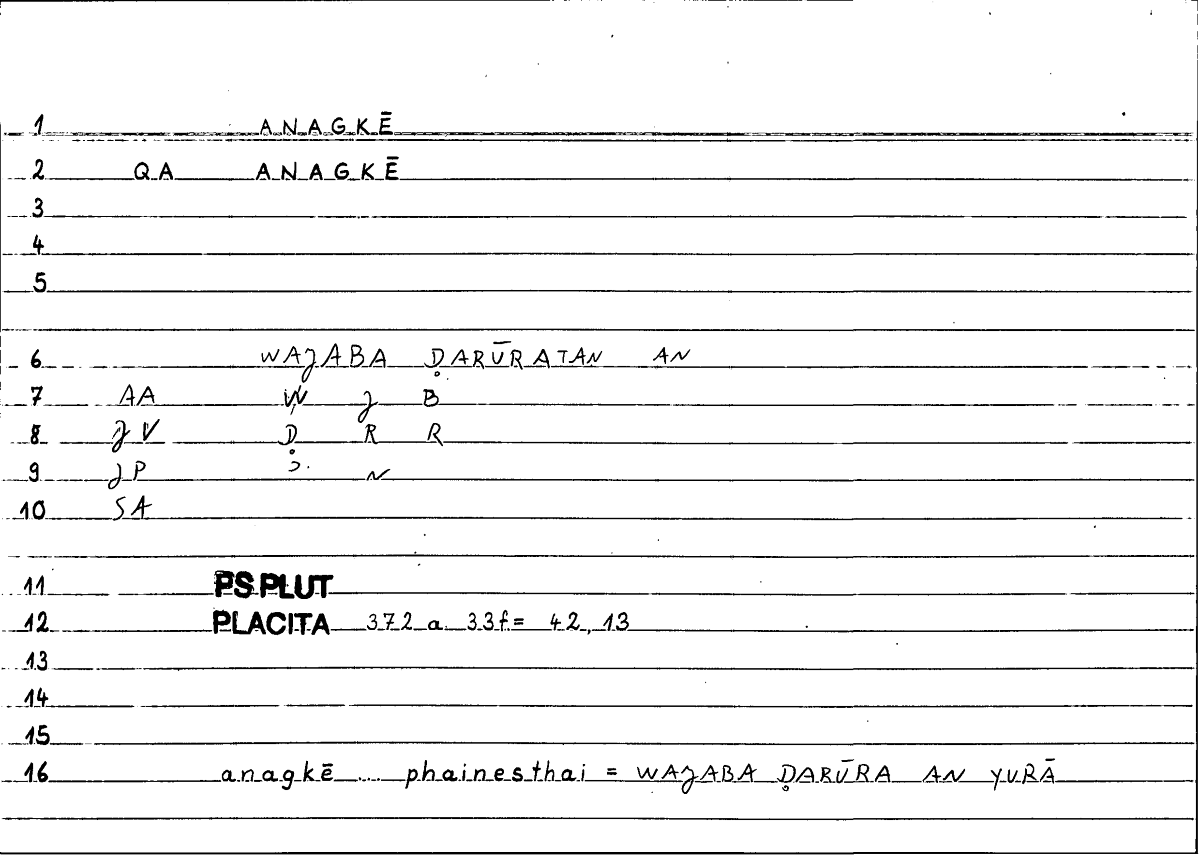 1 ANAGKĒ
2 QA ANAGKĒ
3
4
5
6 WAJABA ḌARŪRATAN AN
7 AA W J B
8 JV Ḍ R R
9 JP ʾ N
10 SA
11 PS.PLUT
12 PLACITA 372 a 33f = 42,13
13
14
15
16 anagkē ... phainesthai = WAJABA ḌARŪRA AN YURĀ